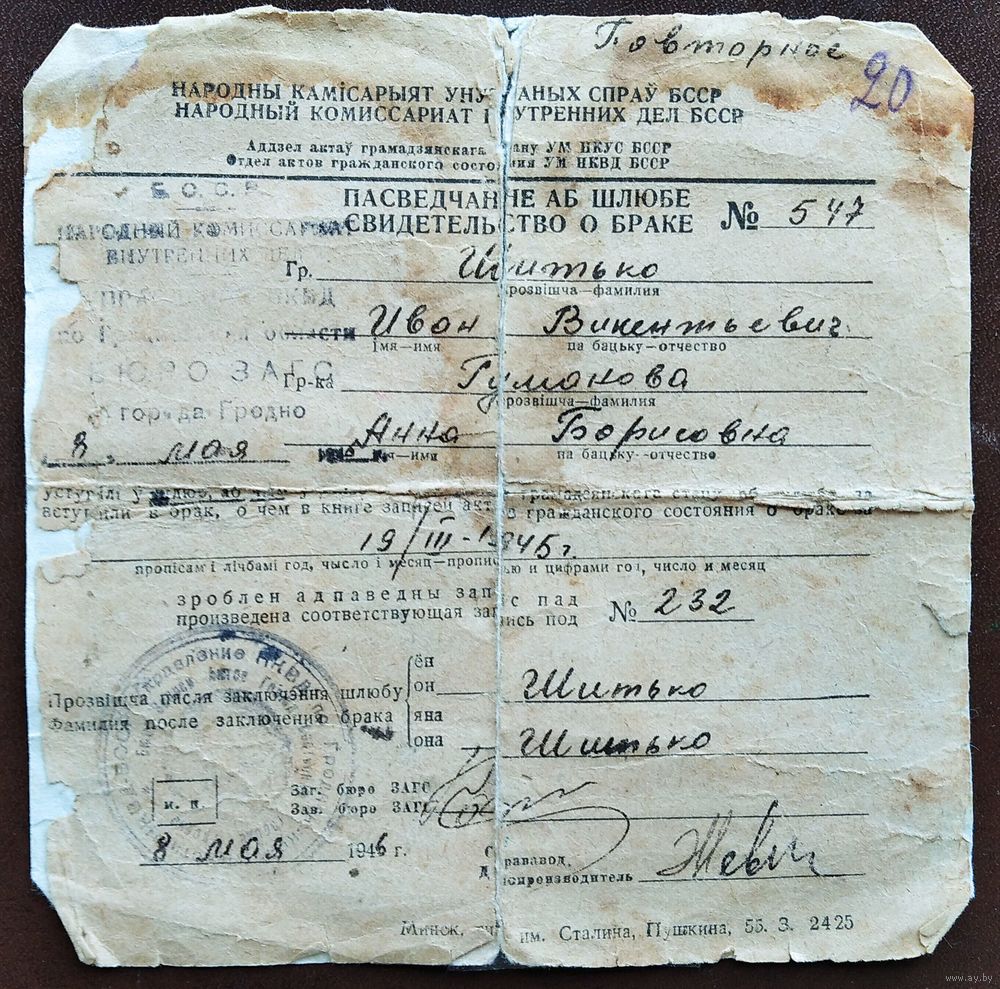 Повторное
20
НАРОДНЫ КАМІСАРЫЯТ УНУ АНЫХ СПРАЎ БССР
НАРОДНЫЙ КОМИССАРИАТ УТРЕННИХ ДЕЛ БССР
Аддзел актаў грамадзянскага ану УМ НКУС БССР
Отдел актов гражданского состо ния УМ НКВД БССР
Б.С.С.Р.
НАРОДНЫЙ КОМИССАРИАТ
ВНУТРЕННИХ ДЕЛ
НКВД
области
БЮРО ЗАГС
города Гродно
ПАСВЕДЧАННЕ АБ ШЛЮБЕ
СВИДЕТЕЛЬСТВО О БРАКЕ № 547
Гр. Шитько
прозвішча—фамилия
Иван Викентьевич
імя—имя па бацьку—отчество
Гр-ка Гуманова
прозвішча—фамилия
Анна Борисовна
імя—имя па бацьку-отчество
8 мая
уступілі у шлюб, аб чым у грамадзянскага стану аб шлюбе за
вступили в брак, о чем в книге записей актов гражданского состояния о браке за
19/III-1945г.
пропісам і лічбамі год, чысло і месяц—пропис ью и цифрами год, число и месяц
зроблен адпаведны запіс пад
произведена соответствующая запись под № 232
Прозвішча пасля заключэння шлюбу
Фамилия после заключения брака
ён
он Шитько
яна
она Шитько
м. п.
Заг. бюро ЗАГС
Зав. бюро ЗАГС
8 мая 1946 г.
справавод,
Делопроизводитель
Минск, им. Сталина, Пушкина, 55. З. 2425
www.ay.by